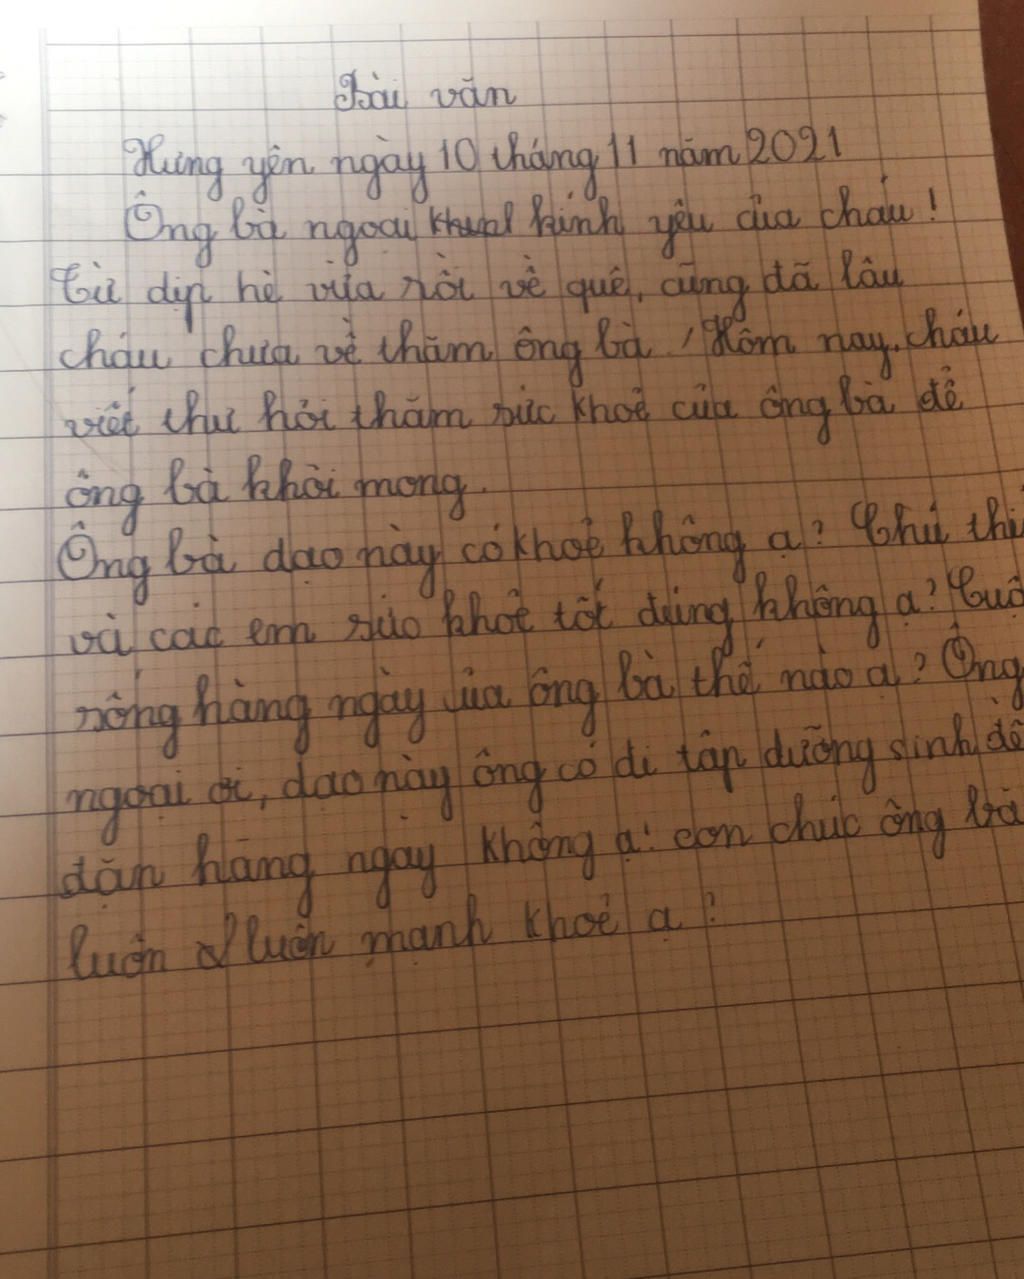 Bài văn
Hưng yên ngày 10 tháng 11 năm 2021
Ông bà ngoại kính yêu của cháu!
Từ dịp hè vừa rồi về quê, cũng đã lâu
cháu chưa về thăm ông bà. Hôm nay, cháu
viết thư hỏi thăm sức khoẻ của ông bà để
ông bà khỏi mong.
Ông bà dạo này có khoẻ không ạ? Chú thì
và các em sức khoẻ tốt đúng không ạ? Cuộ
sống hàng ngày của ông bà thế nào ạ? Ông
ngoại ơi, dạo này ông có đi tập dưỡng sinh đề
dặn hàng ngày không ạ? con chúc ông bà
luôn luôn mạnh khoẻ ạ?